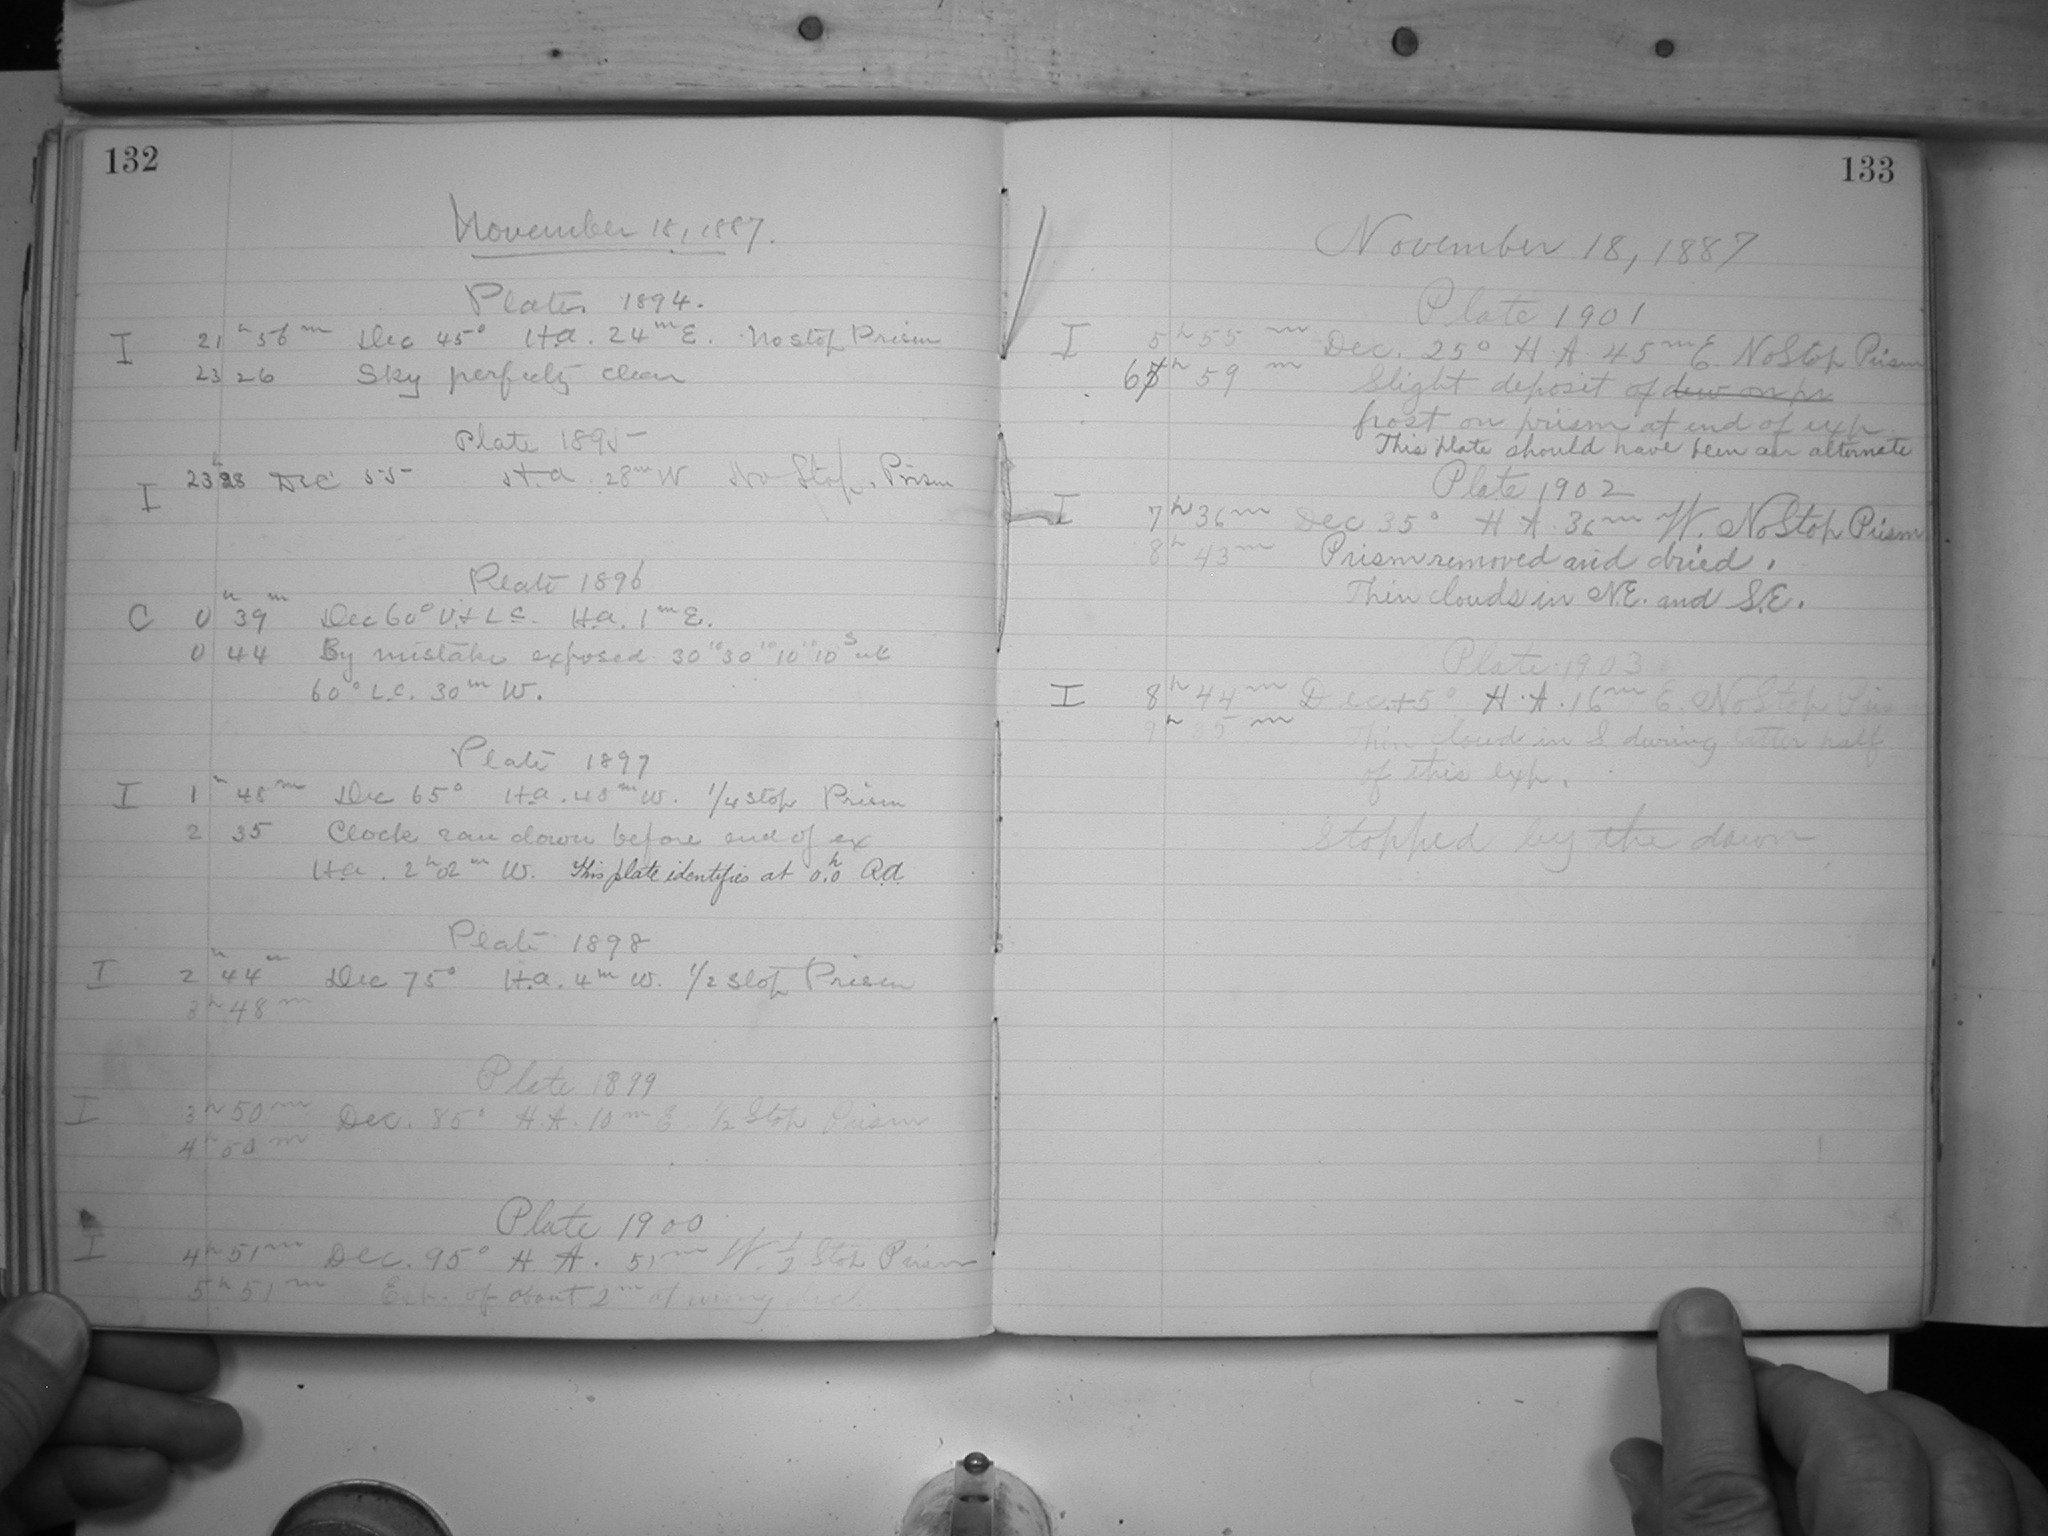 132
November 18, 1887.
Plate 1894.
I 21 h 56 m Dec 45° H.a. 24 m E. No stop Prism
23 26 Sky perfectly clear
Plate 1895
I 23 28 Dec 55 H.a. 28 m W No Stop. Prism
Plate 1896
C 0 h 39 m Dec 60° U.+L.C. H.a. 1 m E.
0 44 By mistake exposed 30 10 30 10 10 10 10 s at
60° L.C. 30 m W.
Plate 1897
I 1 h 48 m Dec 65° H.a. 48 m W. 1/4 stop Prism
2 35 Clock ran down before end of ex
H.a. 2 h 02 m W. This plate identifies at 0.0 h R.a.
Plate 1898
I 2 h 44 m Dec 75° H.a. 4 m W. 1/2 stop Prism
3 h 48 m
Plate 1899
I 3 h 50 m Dec. 85° H.A. 10 m E. 1/2 Stop Prism
4 h 50 m
Plate 1900
I 4 h 51 m Dec. 95° H A. 51 m W. 1/2 Stop Prism
5 h 51 m Exp. of about 2 m at wrong dec.
133
November 18, 1887
Plate 1901
I 5 h 55 m Dec. 25° H.A. 45 m E. No Stop Prism
6 5 h 59 m Slight deposit of dew on pr
frost on prism at end of exp.
This plate should have been an alternate
Plate 1902
I 7 h 36 m Dec 35° H A. 36 m W. No Stop Prism
8 h 43 m Prism removed and dried.
Thin clouds in N.E. and S.E.
Plate 1903
I 8 h 44 m Dec. +5° H.A. 16 m E. No Stop Pris
9 h 35 m Thin cloud in S during latter half
of this exp.
Stopped by the dawn